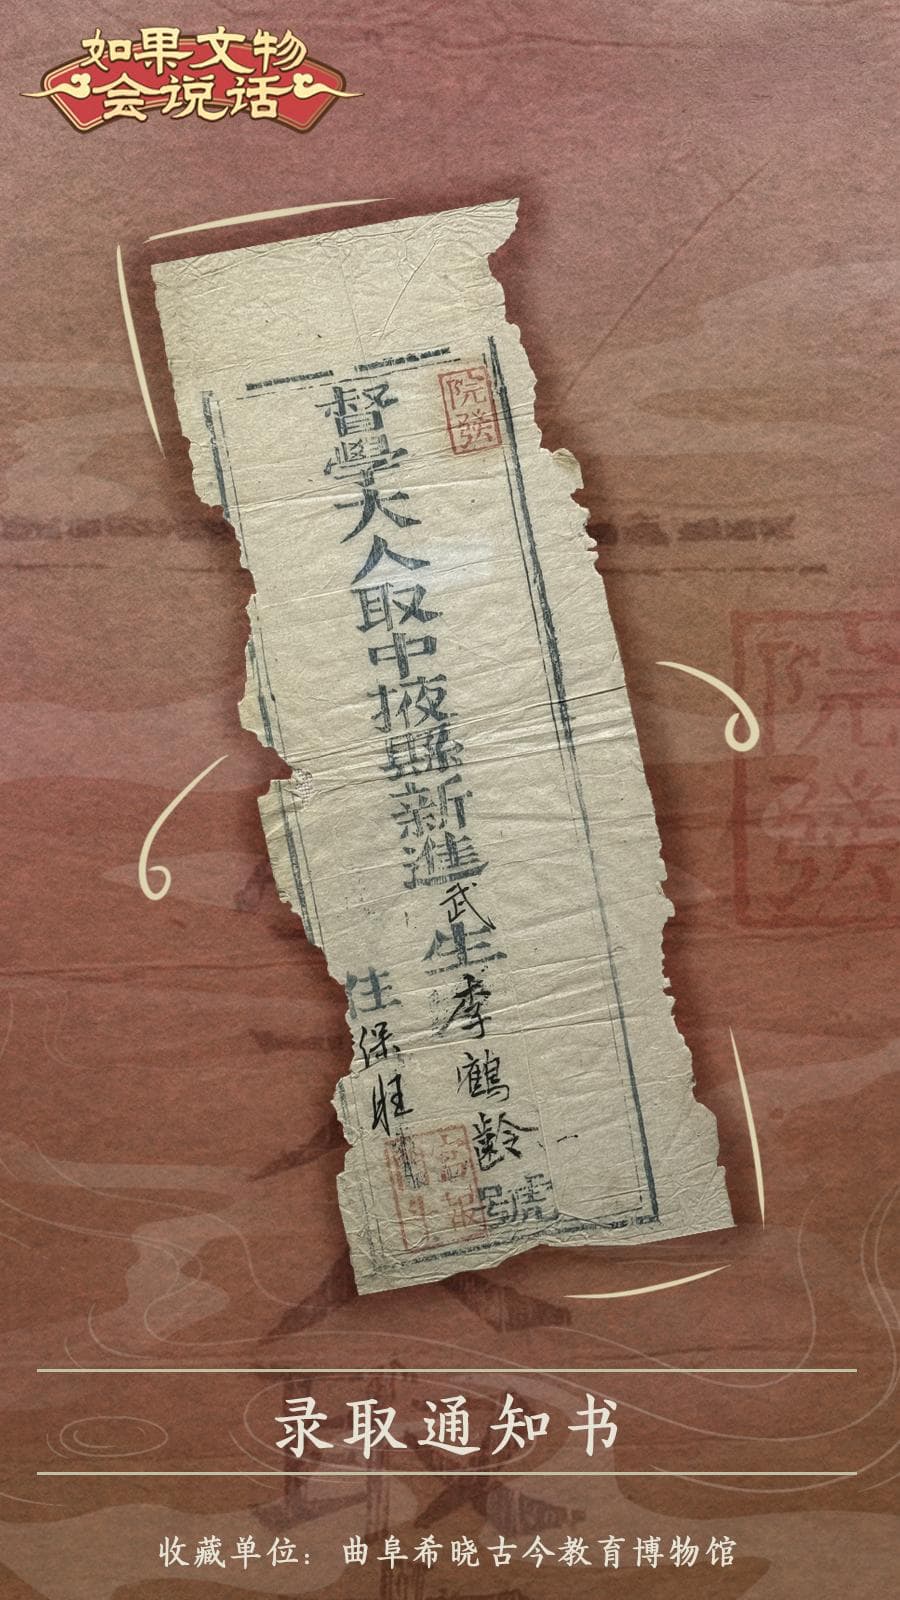 如果文物
会说话
院發
督學大人取中掖縣新進武生李鶴齡號
住保旺
录取通知书
收藏单位：曲阜希晓古今教育博物馆